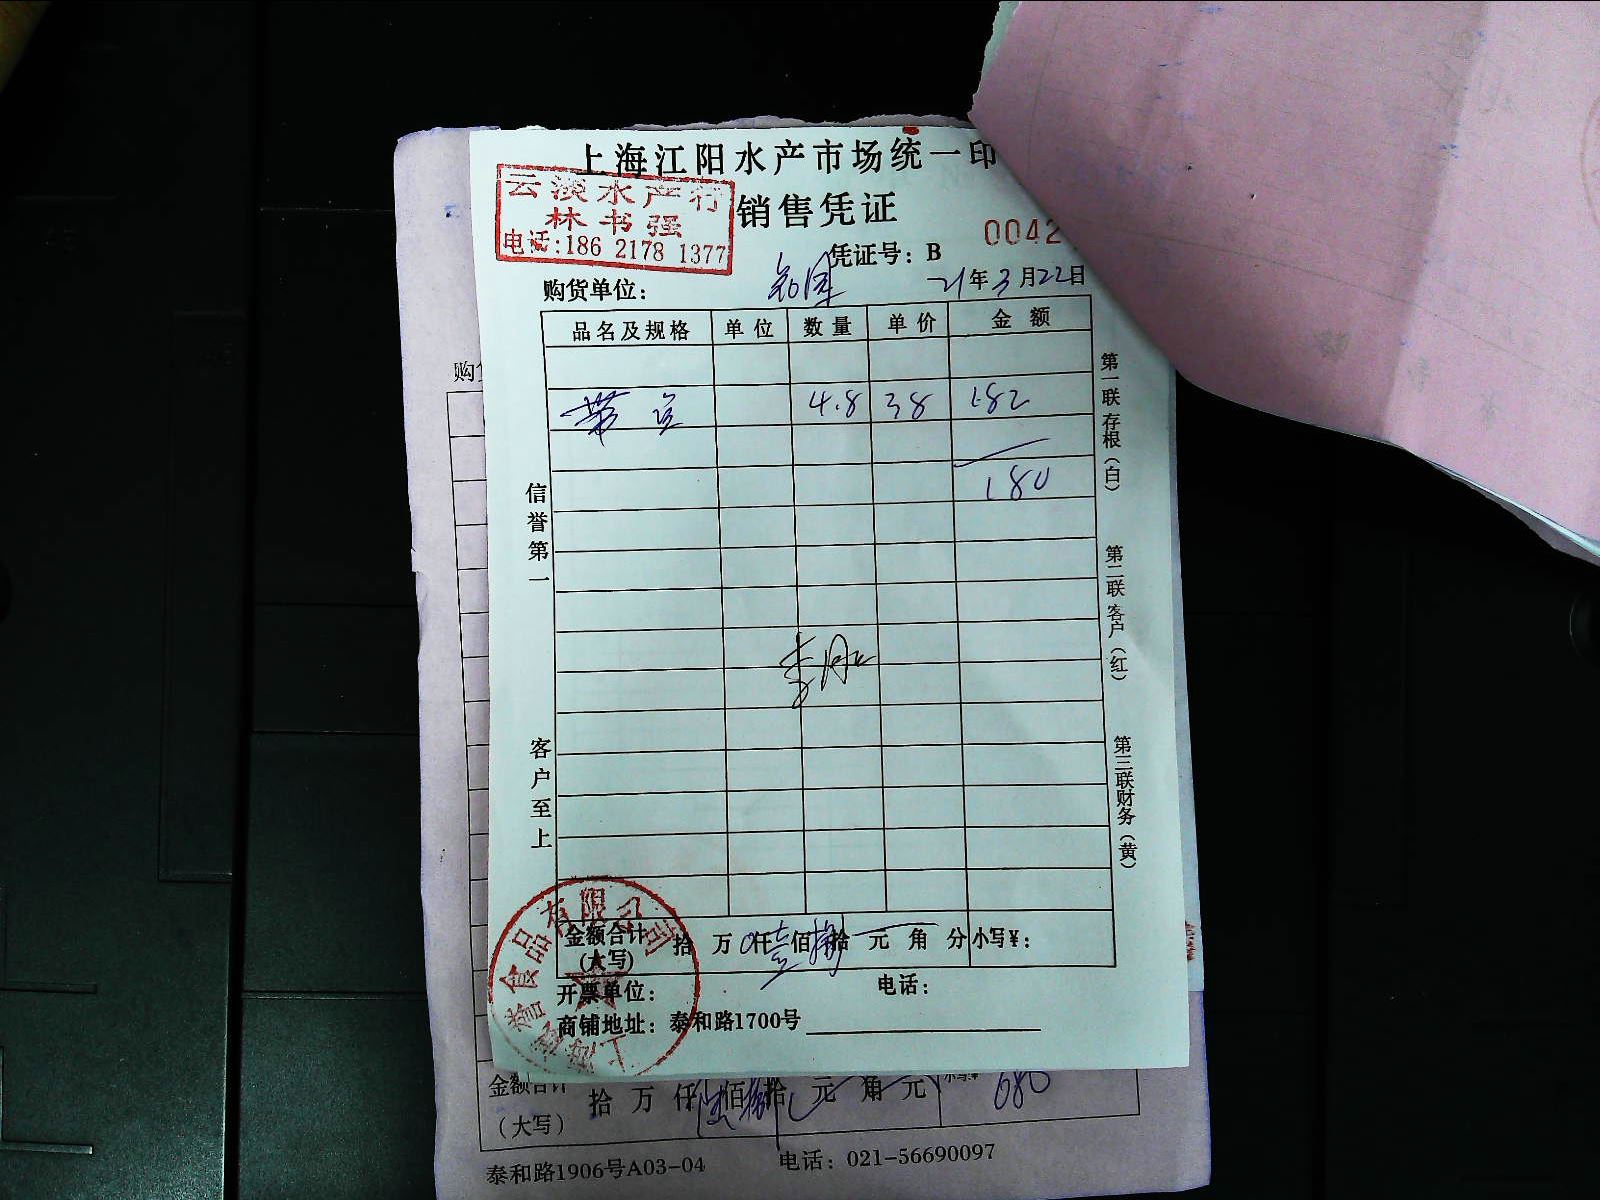 上海江阳水产市场统一印
销售凭证
云淡水产行
林书强
电话:186 2178 1377
凭证号：B 0042
购货单位：
21年3月22日
品名及规格 单位 数量 单价 金额
4.8 38 182
180
信誉第一
客户至上
第一联存根（白）
第二联客户（红）
第三联财务（黄）
金额合计(大写) 拾 万 0仟 壹佰 捌拾 元 角 分 小写¥：
开票单位： 电话：
商铺地址：泰和路1700号
食品有限公司
购
金额合计
（大写） 拾 万 仟 陆佰 捌拾 元 角 元 小写¥ 680
泰和路1906号A03-04 电话：021-56690097